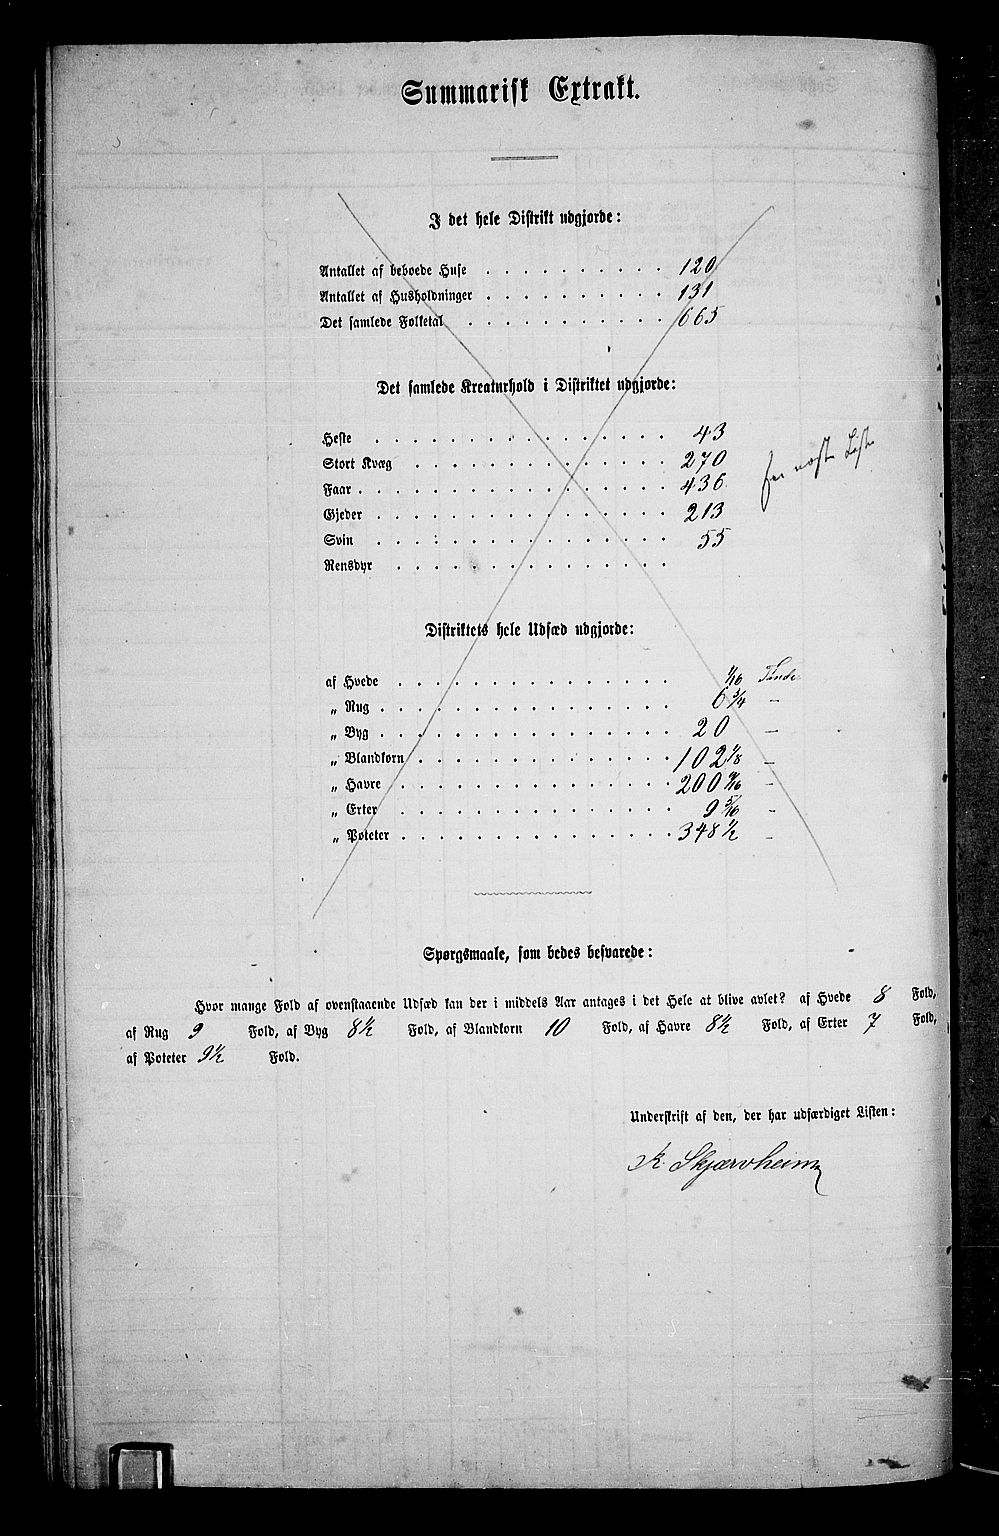 Summarisk Extrakt.
I det hele Distrikt udgjorde:
Antallet af beboede Huse . . . . . . . . 120
Antallet af Husholdninger . . . . . . . . 131
Det samlede Folketal . . . . . . . . . 665
Det samlede Kreaturhold i Distriktet udgjorde:
Heste . . . . . . . . . . . . . 43
Stort Kvæg . . . . . . . . . . . 270
Faar . . . . . . . . . . . . . . 436
Gjeder . . . . . . . . . . . . . 213
Svin . . . . . . . . . . . . . 55
Rensdyr . . . . . . . . . . . .
Distriktets hele Udsæd udgjorde:
af Hvede . . . . . . . . . . . . 1/16 Tønde
„ Rug . . . . . . . . . . . . . 6 3/4 –
„ Byg . . . . . . . . . . . . . 20 –
„ Blandkorn . . . . . . . . . . . 102 1/8 –
„ Havre . . . . . . . . . . . . 200 9/16 –
„ Erter . . . . . . . . . . . . 9 5/16 –
„ Poteter . . . . . . . . . . . . 348 1/2 –
Spørgsmaale, som bedes besvarede:
Hvor mange Fold af ovenstaaende Udsæd kan der i middels Aar antages i det Hele at blive avlet? af Hvede 8 Fold,
af Rug 9 Fold, af Byg 8 1/2 Fold, af Blandkorn 10 Fold, af Havre 8 1/2 Fold, af Erter 7 Fold,
af Poteter 9 1/2 Fold.
Underskrift af den, der har udfærdiget Listen:
K. Skjærvheim